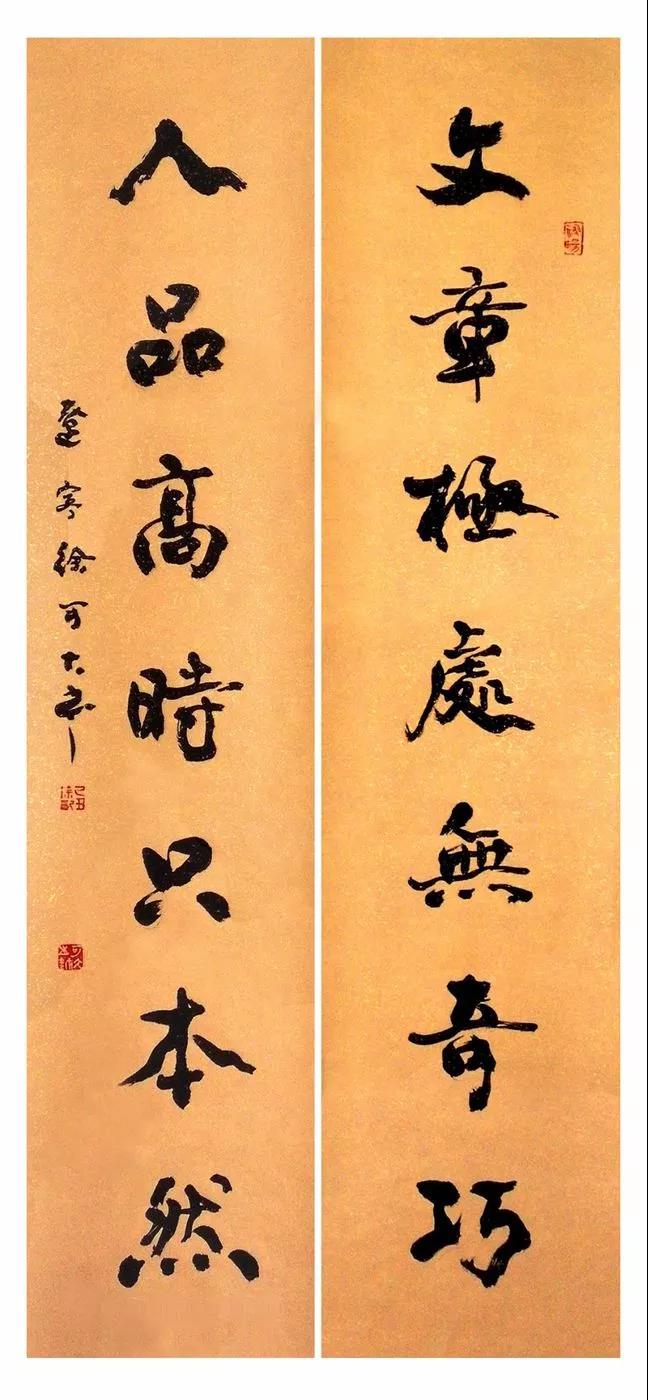 文章極處無奇巧
人品高時只本然
徐可